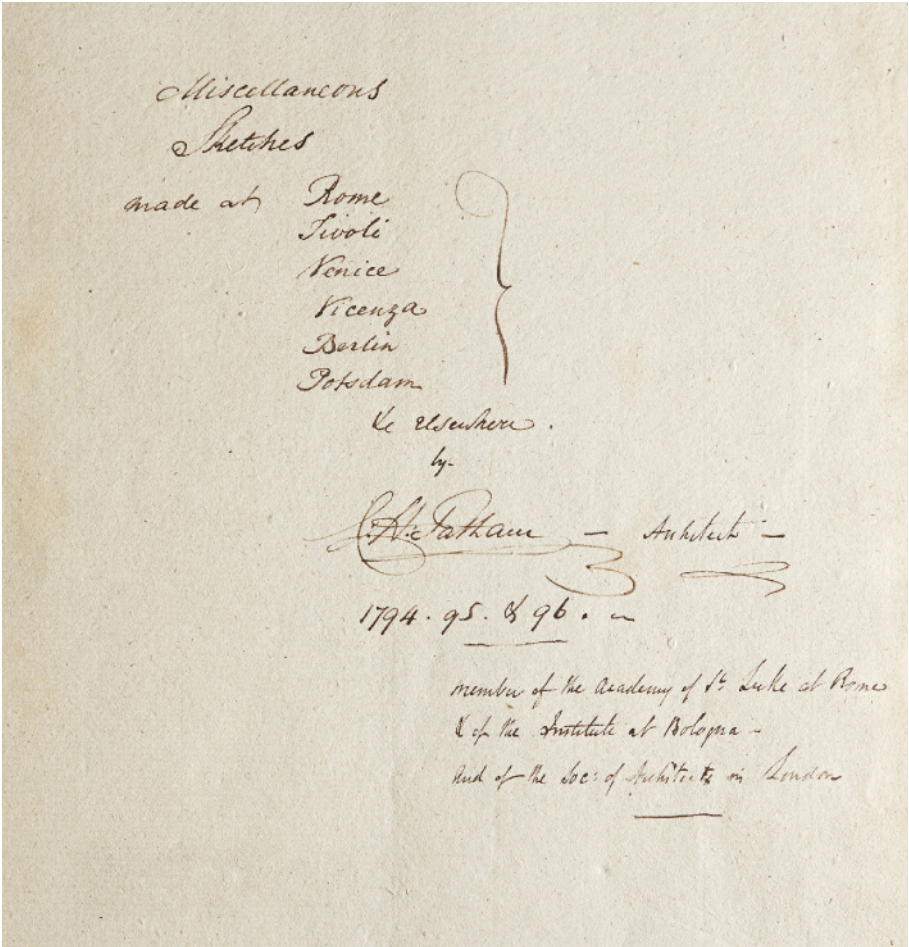 Miscellaneous
Sketches
made at Rome
Tivoli
Venice
Vicenza
Berlin
Potsdam
& Elsewhere.
by
C. H. Tatham — Architect —
1794. 95. & 96.
member of the Academy of St. Luke at Rome
& of the Institute at Bologna —
and of the Soc: of Architects in London